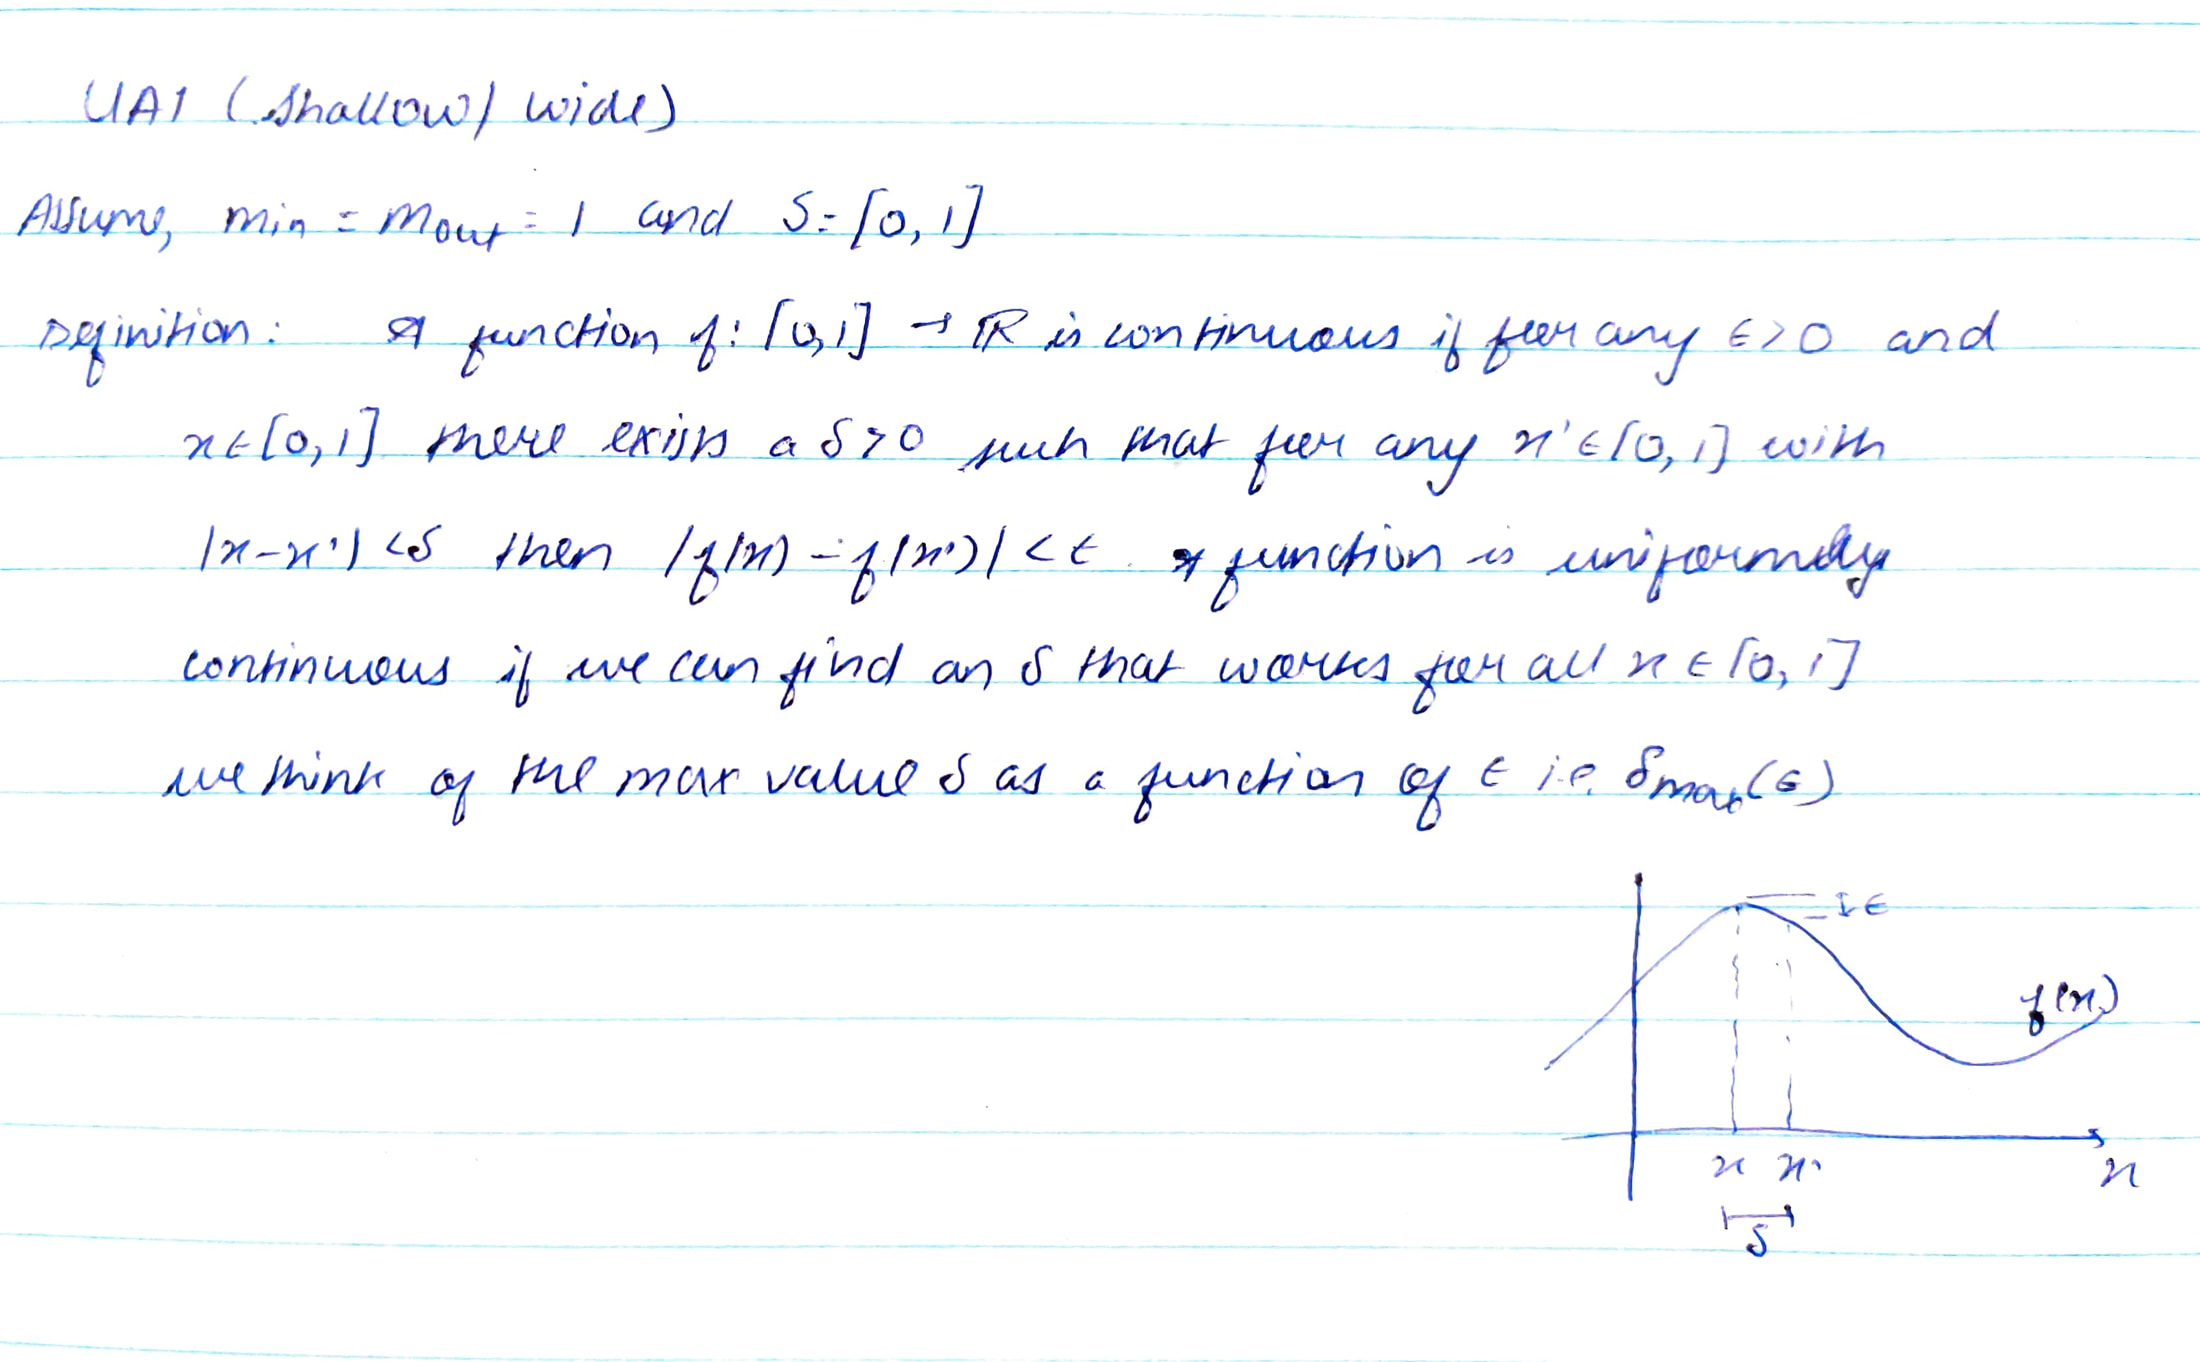 UA1 (Shallow/ wide)
Assume, min = mout = 1 and S = [0, 1]
Definition: A function f: [0,1] → ℝ is continuous if for any ε>0 and
x∈[0,1] there exists a δ>0 such that for any x'∈[0,1] with
|x-x'| <δ then |f(x) - f(x')| < ε. A function is uniformly
continuous if we can find an δ that works for all x ∈ [0, 1]
we think of the max value δ as a function of ε i.e. δmax(ε)
ε
f(x)
x x' x
δ